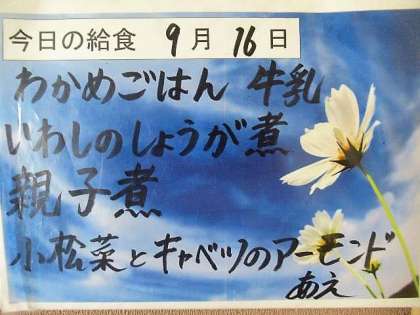 今日の給食 9月 16日
わかめごはん 牛乳
いわしのしょうが煮
親子煮
小松菜とキャベツのアーモンド
あえ